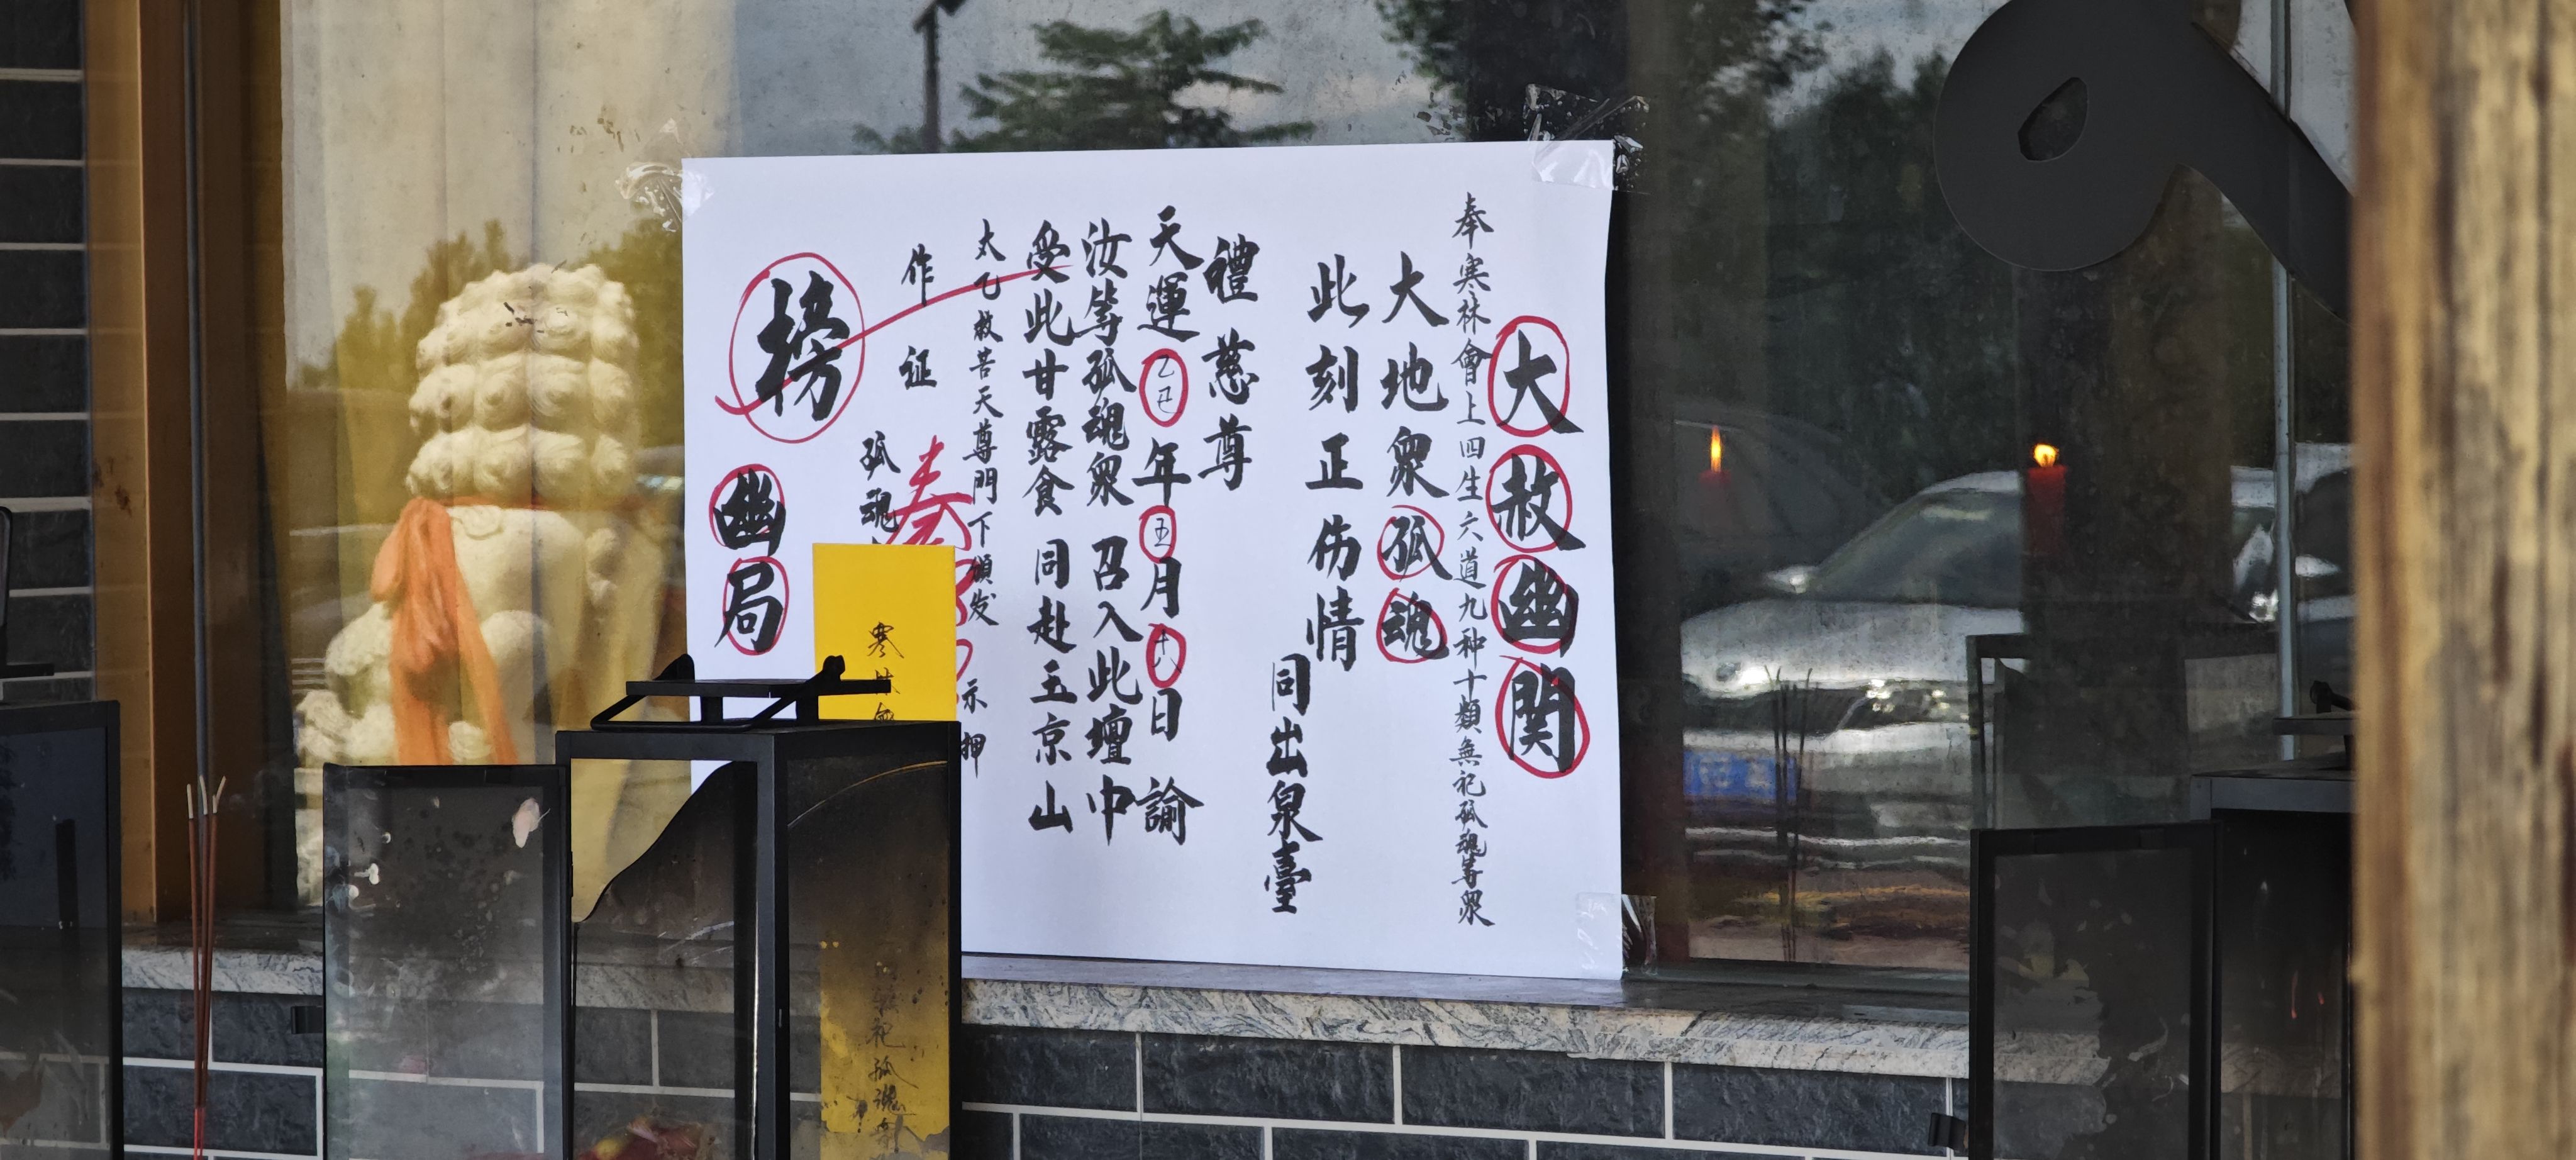 大赦幽関
奉寒林會上四生六道九种十類無祀孤魂等眾
大地眾孤魂
此刻正伤情
同出泉臺
禮慈尊
天運乙巳年五月十八日 諭
汝等孤魂眾 召入此壇中
受此甘露食 同赴玉京山
太乙救苦天尊門下頒发 示押
作证
孤魂
榜
幽局
寒林
祀孤魂